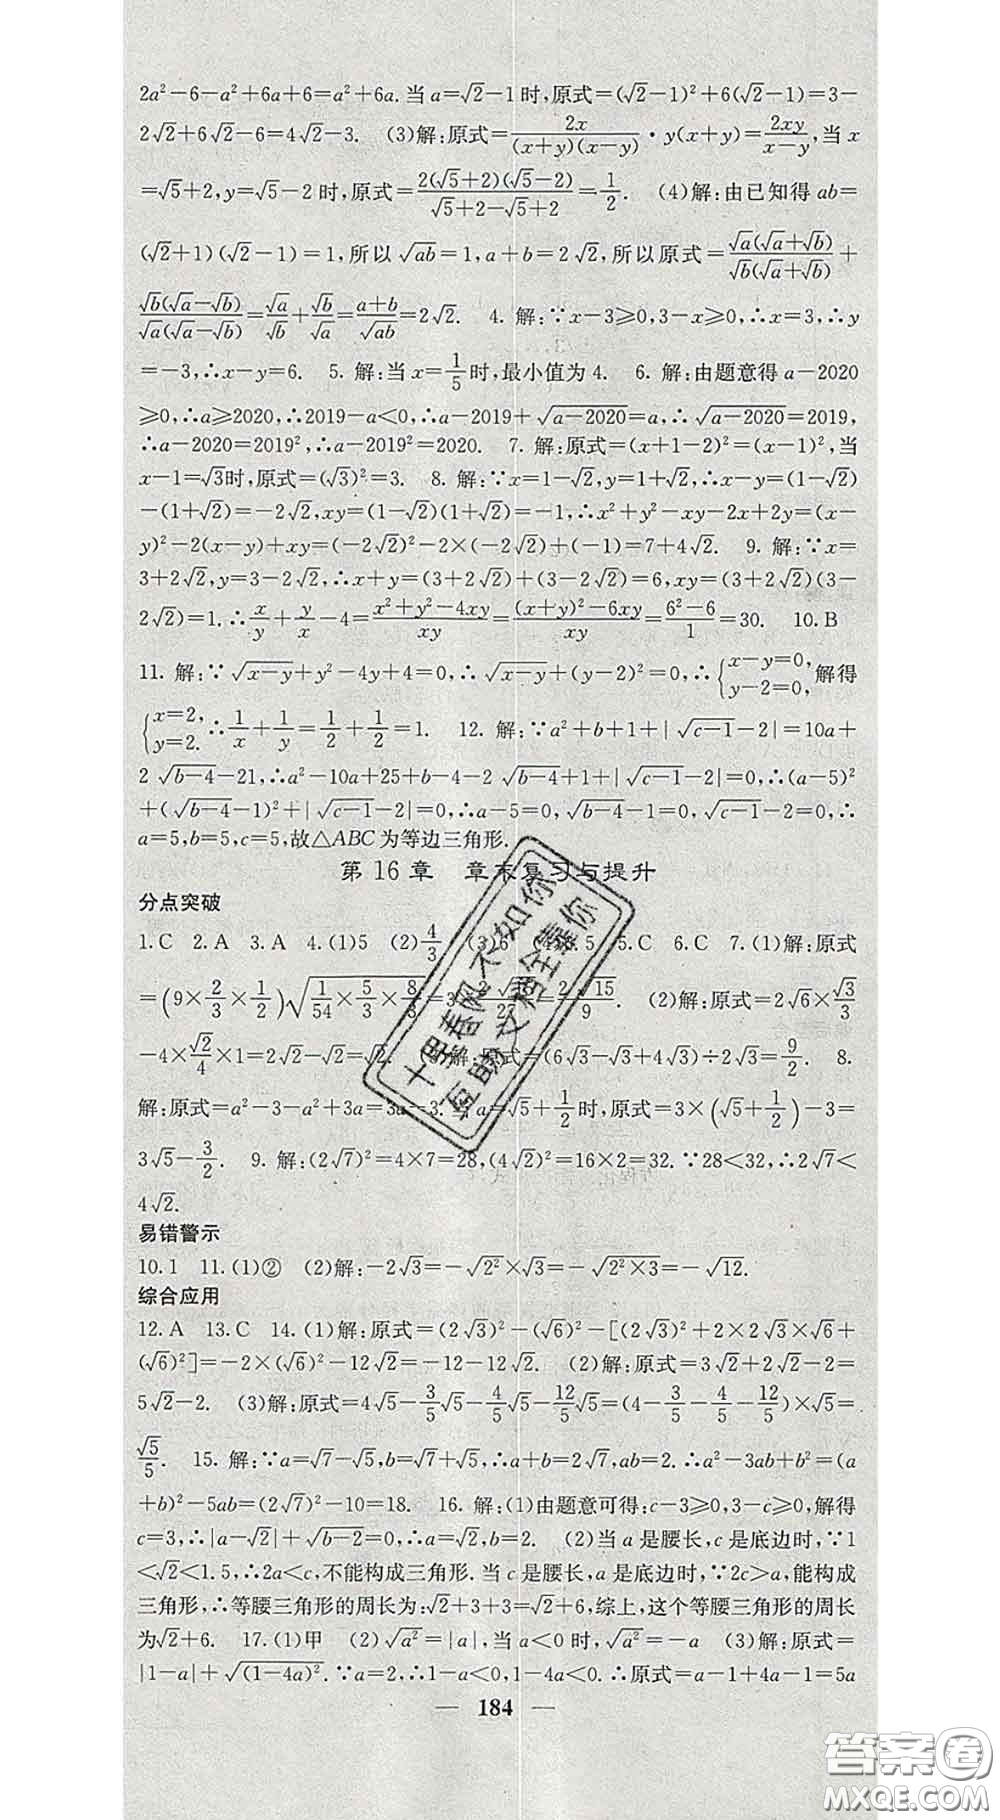 2a²-6-a²+6a+6=a²+6a.当a=√2-1时,原式=(√2-1)²+6(√2-1)=3-
2√2+6√2-6=4√2-3. (3)解:原式=2x/((x+y)(x-y))·y(x+y)=2xy/(x-y),当x
=√5+2,y=√5-2时,原式=2(√5+2)(√5-2)/(√5+2-√5+2)=1/2. (4)解:由已知得ab=
(√2+1)(√2-1)=1,所以√(ab)=1,a+b=2√2,所以原式=√a(√a+√b)/(√b(√a+√b))+
√b(√a-√b)/(√a(√a-√b))=√a/√b+√b/√a=(a+b)/√(ab)=2√2. 4. 解:∵x-3≥0,3-x≥0,∴x=3,∴y
=-3,∴x-y=6. 5. 解:当x=1/5时,最小值为4. 6. 解:由题意得a-2020
≥0,∴a≥2020,∴2019-a<0,∴a-2019+√(a-2020)=a,∴√(a-2020)=2019,
∴a-2020=2019²,∴a-2019²=2020. 7. 解:原式=(x+1-2)²=(x-1)²,当
x-1=√3时,原式=(√3)²=3. 8. 解:∵x=1-√2,y=1+√2,∴x-y=(1-√2)
-(1+√2)=-2√2,xy=(1-√2)(1+√2)=-1,∴x²+y²-xy-2x+2y=(x-
y)²-2(x-y)+xy=(-2√2)²-2×(-2√2)+(-1)=7+4√2. 9. 解:∵x=
3+2√2,y=3-2√2,∴x+y=(3+2√2)+(3-2√2)=6,xy=(3+2√2)(3-
2√2)=1.∴x/y+y/x-4=(x²+y²-4xy)/xy=((x+y)²-6xy)/xy=(6²-6)/1=30. 10.B
11. 解:∵√(x-y)+y²-4y+4=0,∴√(x-y)+(y-2)²=0,∴{x-y=0, y-2=0,解得
{x=2, y=2.∴1/x+1/y=1/2+1/2=1. 12. 解:∵a²+b+1+|√(c-1)-2|=10a+
2√(b-4)-21,∴a²-10a+25+b-4-2√(b-4)+1+|√(c-1)-2|=0,∴(a-5)²
+(√(b-4)-1)²+|√(c-1)-2|=0,∴a-5=0,√(b-4)-1=0,√(c-1)-2=0,∴
a=5,b=5,c=5,故△ABC为等边三角形.
第16章 章末复习与提升
分点突破
1.C 2.A 3.A 4.(1)5 (2)4/3 (3)6 5 5.C 6.C 7.(1)解:原式
=(9×2/3×1/2)√(1/54×5/3×8/3)=3 2√15/27=2√15/9. (2)解:原式=2√6×√3/3
-4×√2/4×1=2√2-√2=√2. (3)解:原式=(6√3-√3+4√3)÷2√3=9/2. 8.
解:原式=a²-3-a²+3a=3a-3.当a=√5+1/2时,原式=3×(√5+1/2)-3=
3√5-3/2. 9. 解:(2√7)²=4×7=28,(4√2)²=16×2=32.∵28<32,∴2√7<
4√2.
易错警示
10.1 11.(1)② (2)解:-2√3=-√2²×√3=-√(2²×3)=-√12.
综合应用
12.A 13.C 14.(1)解:原式=(2√3)²-(√6)²-[(2√3)²+2×2√3×√6+
(√6)²]=-2×(√6)²-12√2=-12-12√2. (2)解:原式=3√2+2√2-2=
5√2-2. (3)解:原式=4√5-3/5√5-4/5√5-12/5√5=(4-3/5-4/5-12/5)×√5=
√5/5. 15. 解:∵a=√7-√5,b=√7+√5,∴a+b=2√7,ab=2.∴a²-3ab+b²=(a
+b)²-5ab=(2√7)²-10=18. 16. 解:(1)由题意可得:c-3≥0,3-c≥0,解得
c=3,∴|a-√2|+√(b-2)=0,∴a=√2,b=2. (2)当a是腰长,c是底边时,∵1
<√2<1.5,∴2a<c,不能构成三角形.当c是腰长,a是底边时,∵2c>a,能构成
三角形,∴等腰三角形的周长为:√2+3+3=√2+6,综上,这个等腰三角形的周长
为√2+6. 17.(1)甲 (2)√a²=|a|,当a<0时,√a²=-a (3)解:原式=
|1-a|+√(1-4a)².∵a=2,∴1-a<0,1-4a<0.∴原式=a-1+4a-1=5a
184
十里春风不如你
互助文档全靠你
答案圈
MXQE.COM